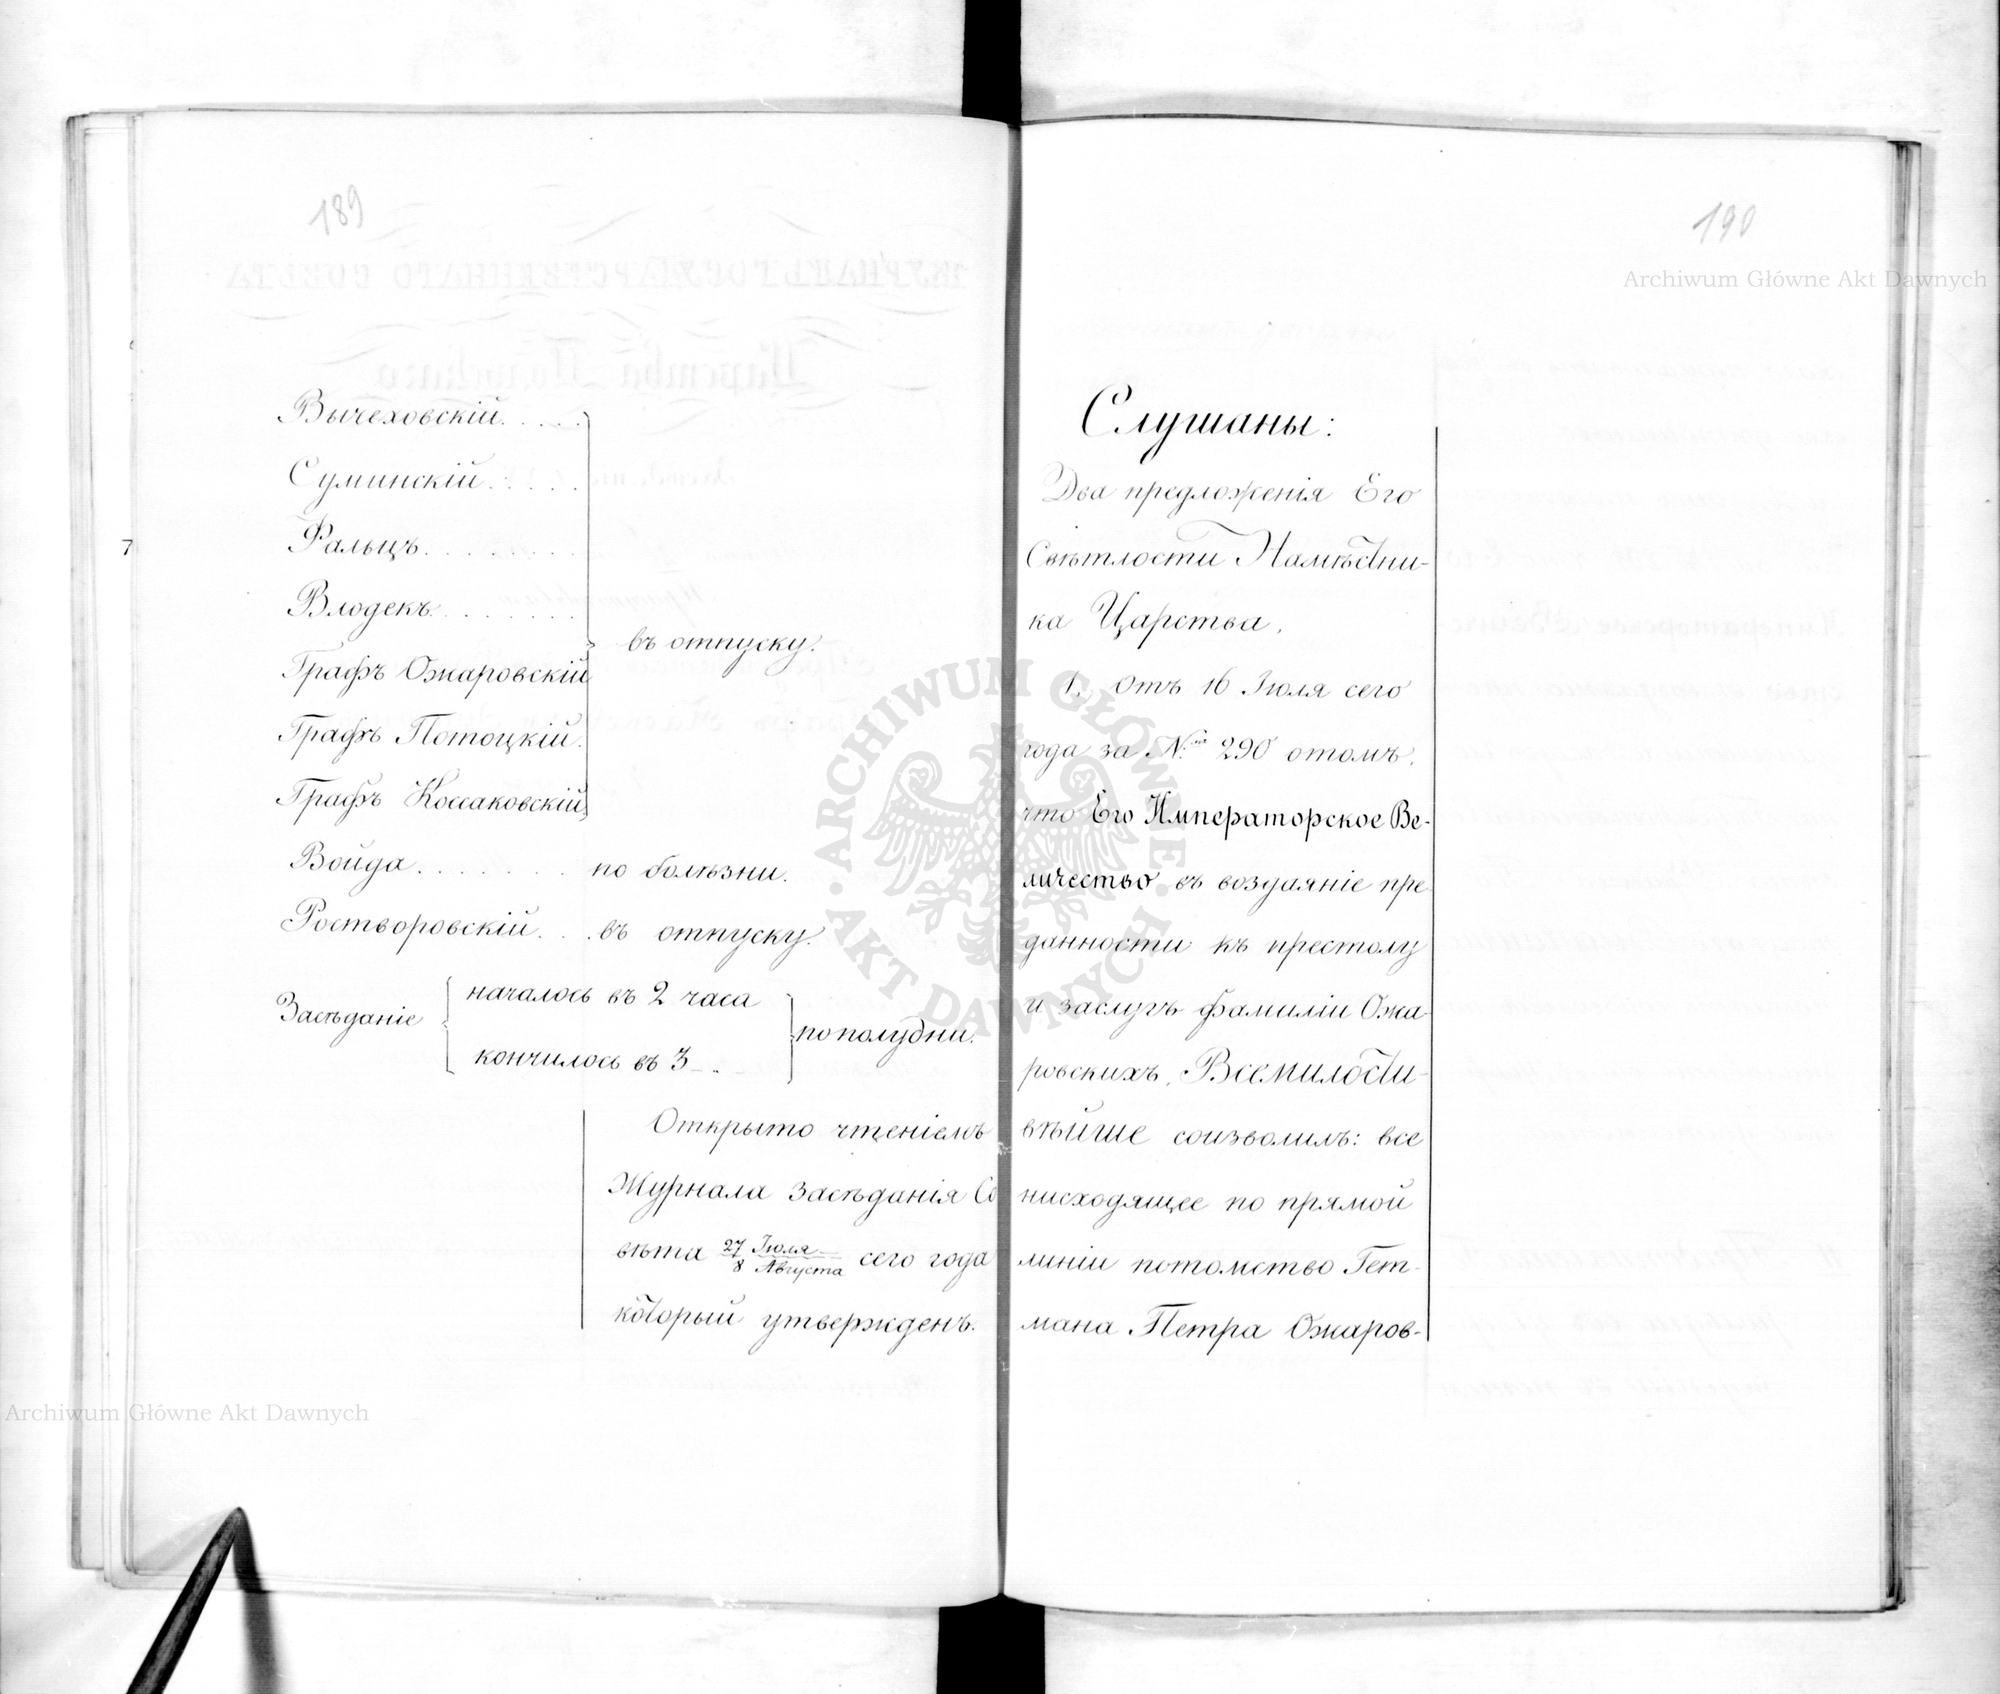 189
Вычеховскій. . . . .
Суминскій. . . . .
Фальцъ. . . . . . .
Влодекъ. . . . . . .
Графъ Ожаровскій
въ отпуску.
Графъ Потоцкій.
Графъ Коссаковскій
Войда. . . . . . . по болѣзни.
Ростворовскій. . . въ отпуску.
Засѣданіе
началось въ 2 часа
кончилось въ 3 – ..
по полудни.
Открыто чтеніемъ
Журнала засѣданія Со
вѣта 27 Іюля / 8 Августа сего года
который утвержденъ.
7
190
Слушаны:
Два предложенія Его
Свѣтлости Намѣстни-
ка Царства.
1, отъ 16 Іюля сего
года за №. 290 отомъ,
что Его Императорское Ве-
личество въ воздаяніе пре
данности къ престолу
и заслугъ фамиліи Ожа-
ровскихъ, Всемилости-
вѣйше соизволилъ: все
нисходящее по прямой
линіи потомство Гет-
мана Петра Ожаров-
Archiwum Główne Akt Dawnych
ARCHIWUM GŁÓWNE · AKT DAWNYCH ·
Archiwum Główne Akt Dawnych